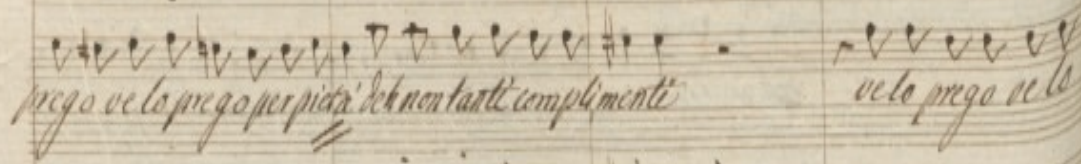 prego ve lo prego per pietà deh non tanti complimenti ve lo prego ve lo